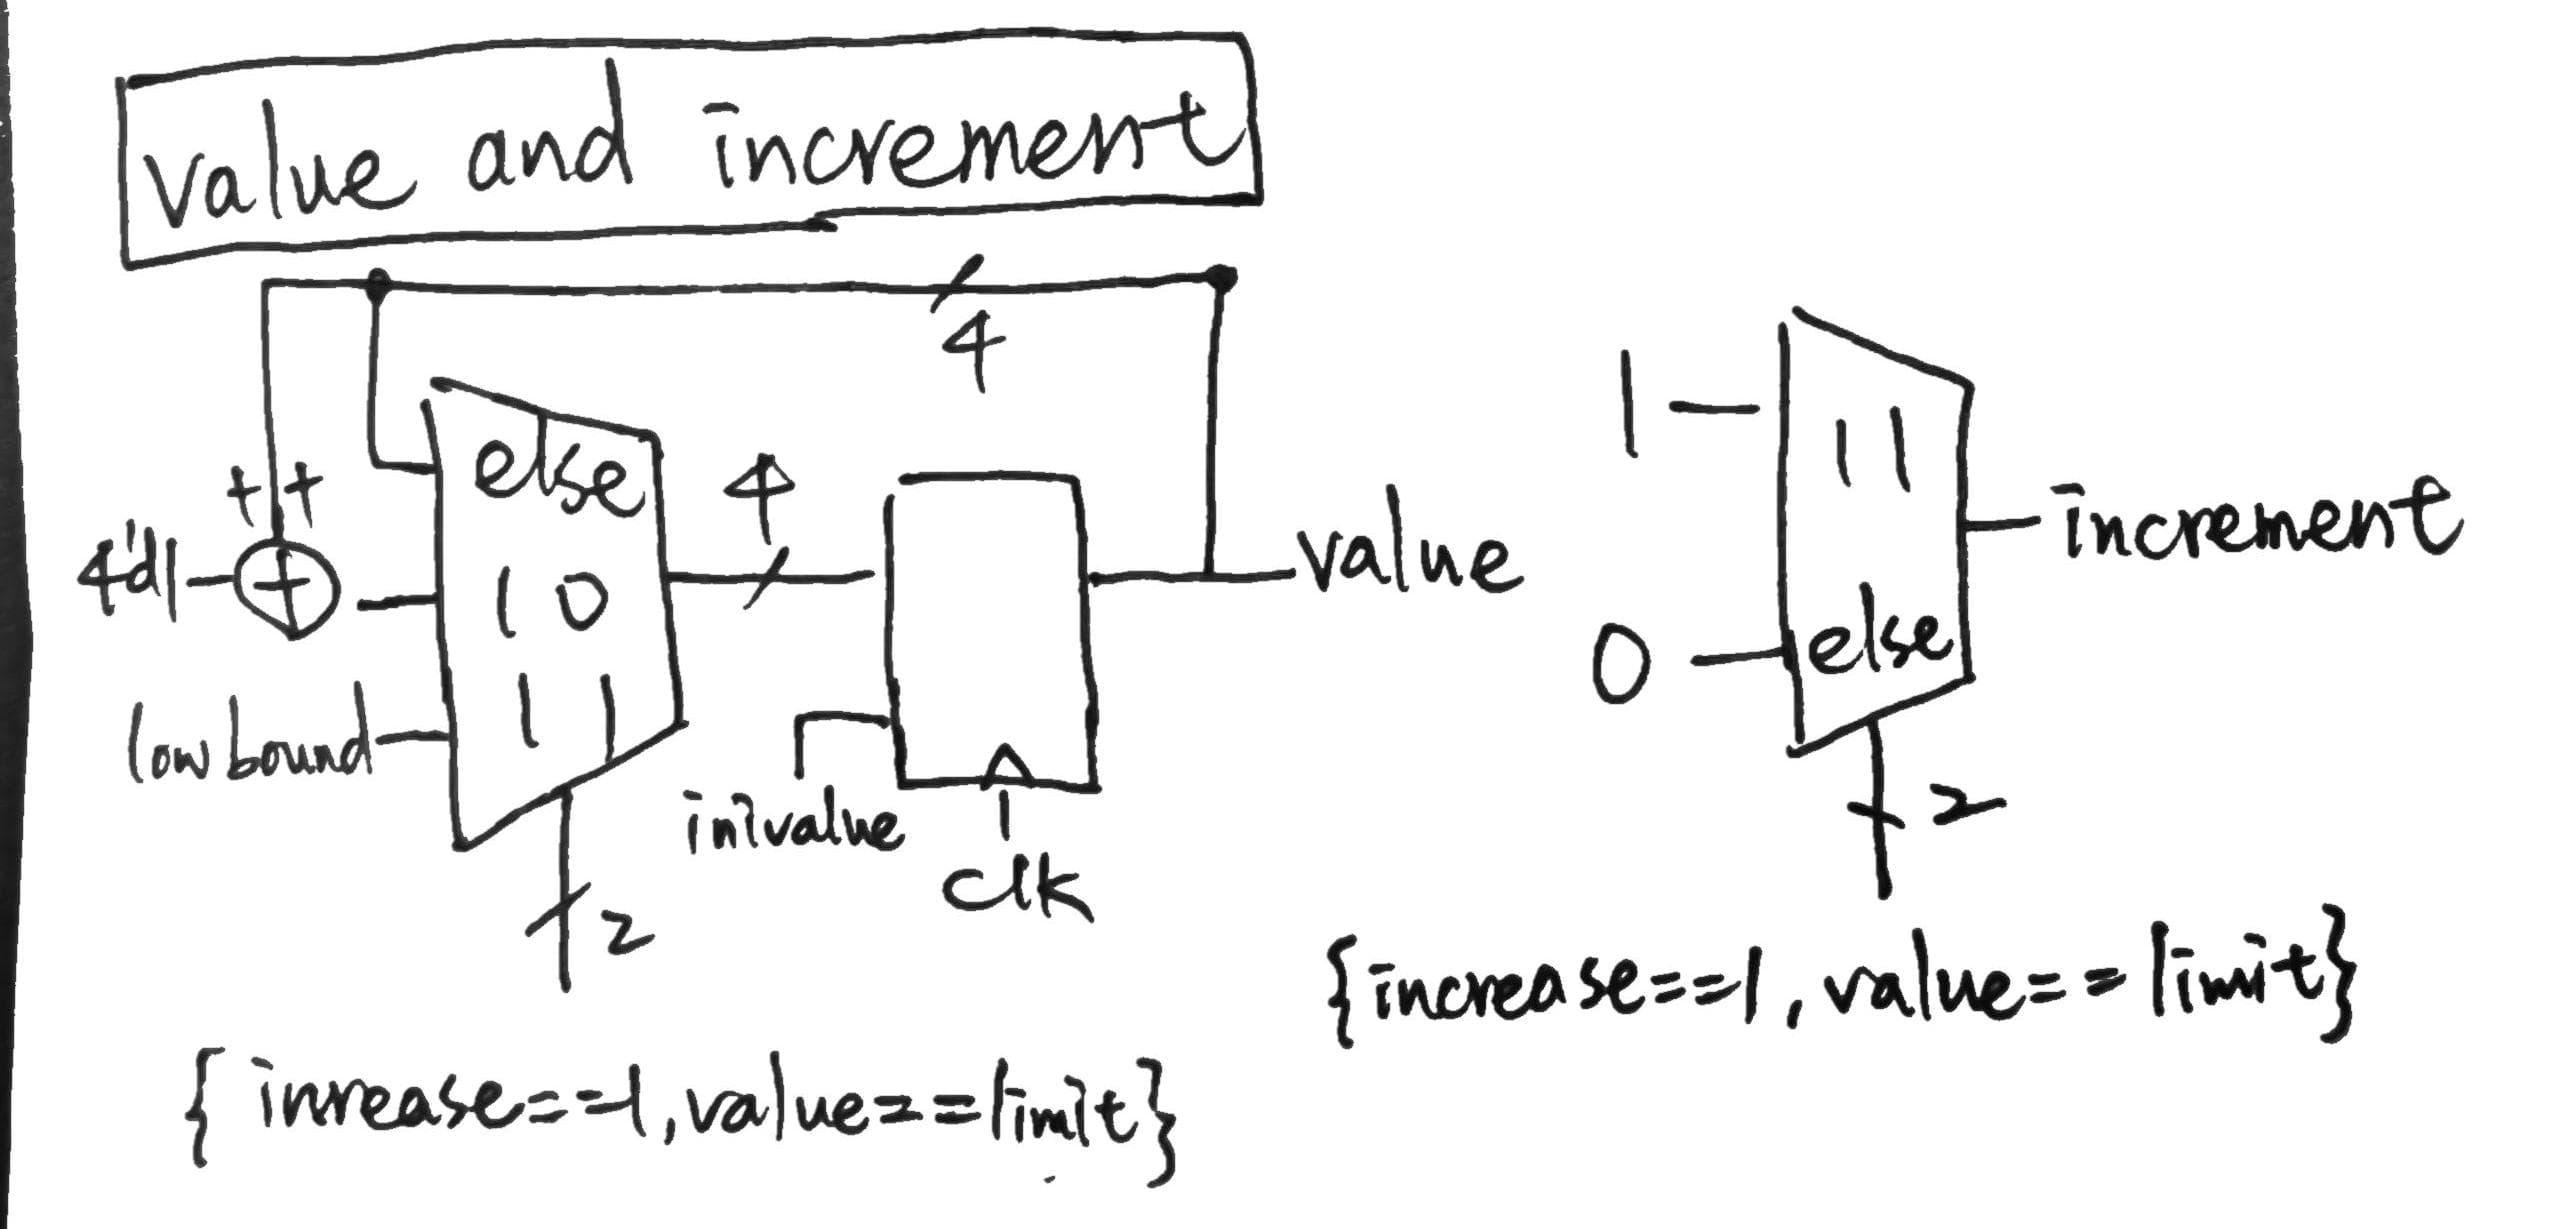 value and increment
4
+ +
4'd1
+
else
10
11
low bound
4
inivalue
clk
value
2
{inrease==1,value==limit}
1
11
0
else
increment
2
{increase==1,value==limit}